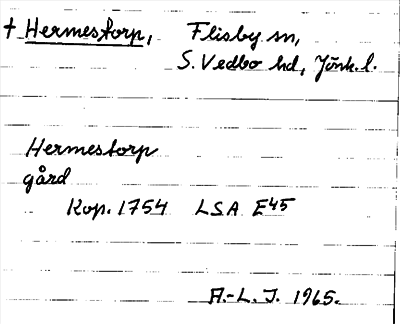 † Hermestorp, Flisby sn,
S. Vedbo hd, Jönk. l.
Hermestorp
gård
Kop. 1754 LSA E45
A.-L. J. 1965.